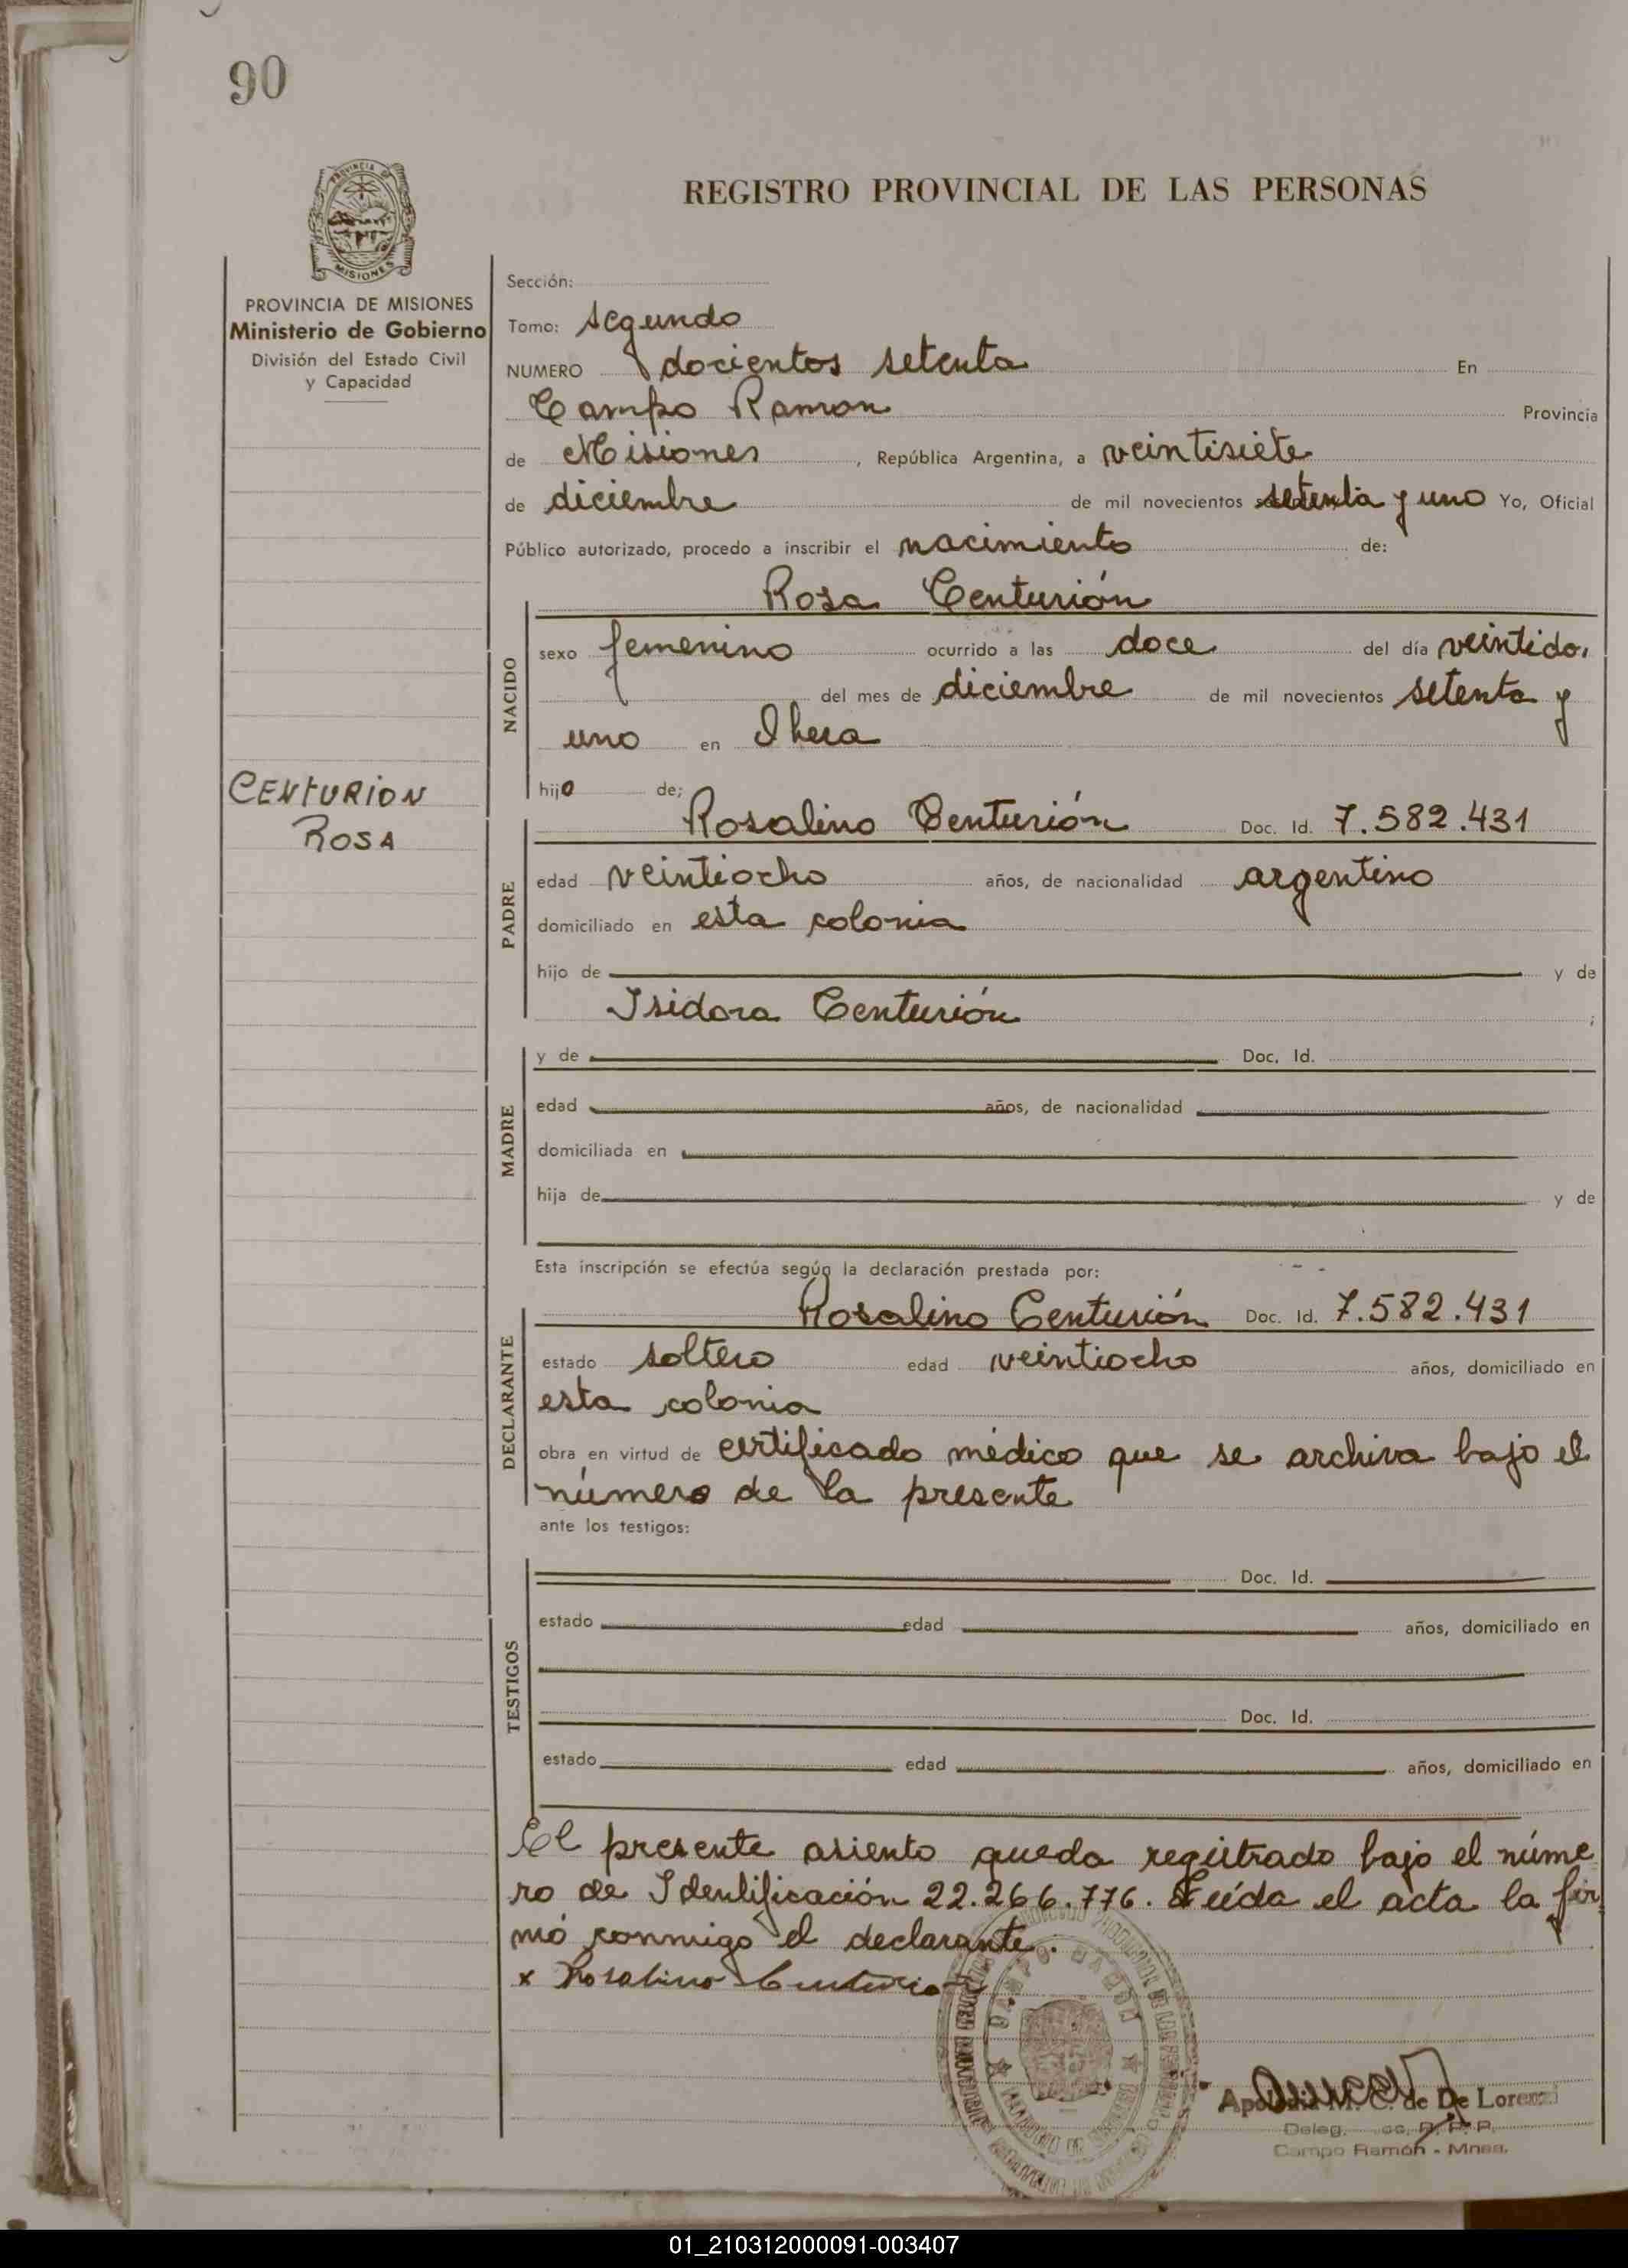 90
PROVINCIA DE
MISIONES
REGISTRO PROVINCIAL DE LAS PERSONAS
PROVINCIA DE MISIONES
Ministerio de Gobierno
División del Estado Civil
y Capacidad
CENTURION
ROSA
Sección:
Tomo: segundo
NUMERO docientos setenta En
Campo Ramon Provincia
de Misiones , República Argentina, a veintisiete
de diciembre de mil novecientos setenta y uno Yo, Oficial
Público autorizado, procedo a inscribir el nacimiento de:
Rosa Centurión
NACIDO
sexo femenino ocurrido a las doce del día veintidos
del mes de diciembre de mil novecientos setenta y
uno en
hijo de;
PADRE
Rosalino Centurión Doc. Id. 7.582.431
edad veintiocho años, de nacionalidad argentino
domiciliado en esta colonia
hijo de y de
Isidora Centurión ;
MADRE
y de Doc. Id.
edad años, de nacionalidad
domiciliada en
hija de y de
Esta inscripción se efectúa según la declaración prestada por:
DECLARANTE
Rosalino Centurión Doc. Id. 7.582.431
estado soltero edad veintiocho años, domiciliado en
esta colonia
obra en virtud de certificado médico que se archiva bajo el
número de la presente
ante los testigos:
TESTIGOS
Doc. Id.
estado edad años, domiciliado en
Doc. Id.
estado edad años, domiciliado en
El presente asiento queda registrado bajo el núme
ro de Identificación 22.266.776. Leída el acta la fir
mó conmigo el declarante.
x Rosalino Centurion
CAMPO RAMON
M. C. de De Lorenzi
Deleg. R. P. P.
Campo Ramón - Mnes.
01_210312000091-003407